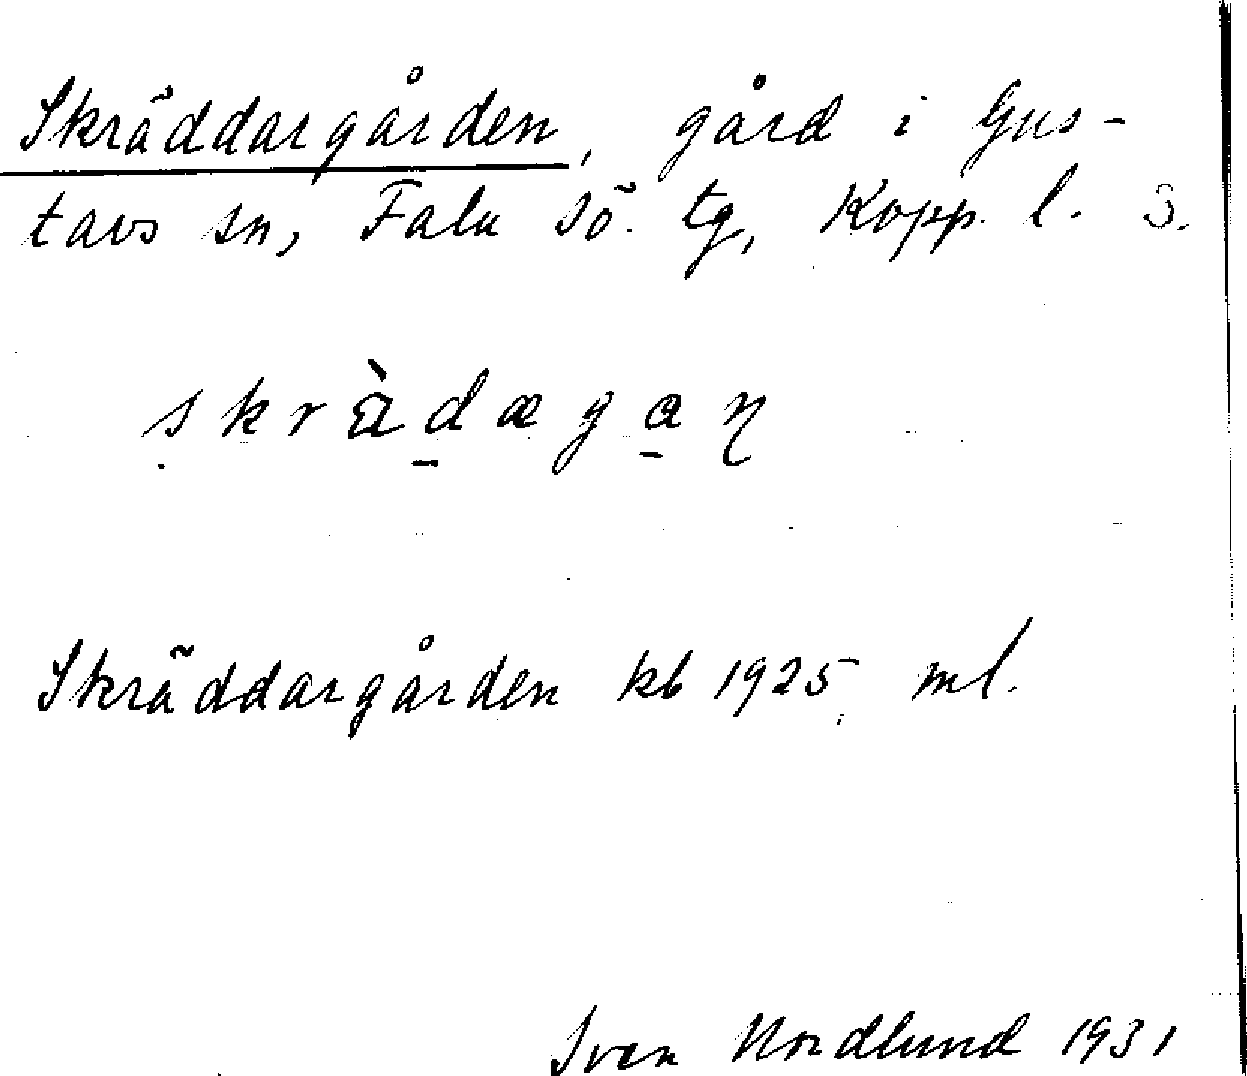 Skräddargården, gård i Gus-
tavs sn, Falu sö. tg, Kopp. l. 3.
skràdægaɳ
Skräddargården kb 1925 ml.
Sven Nordlund 1931